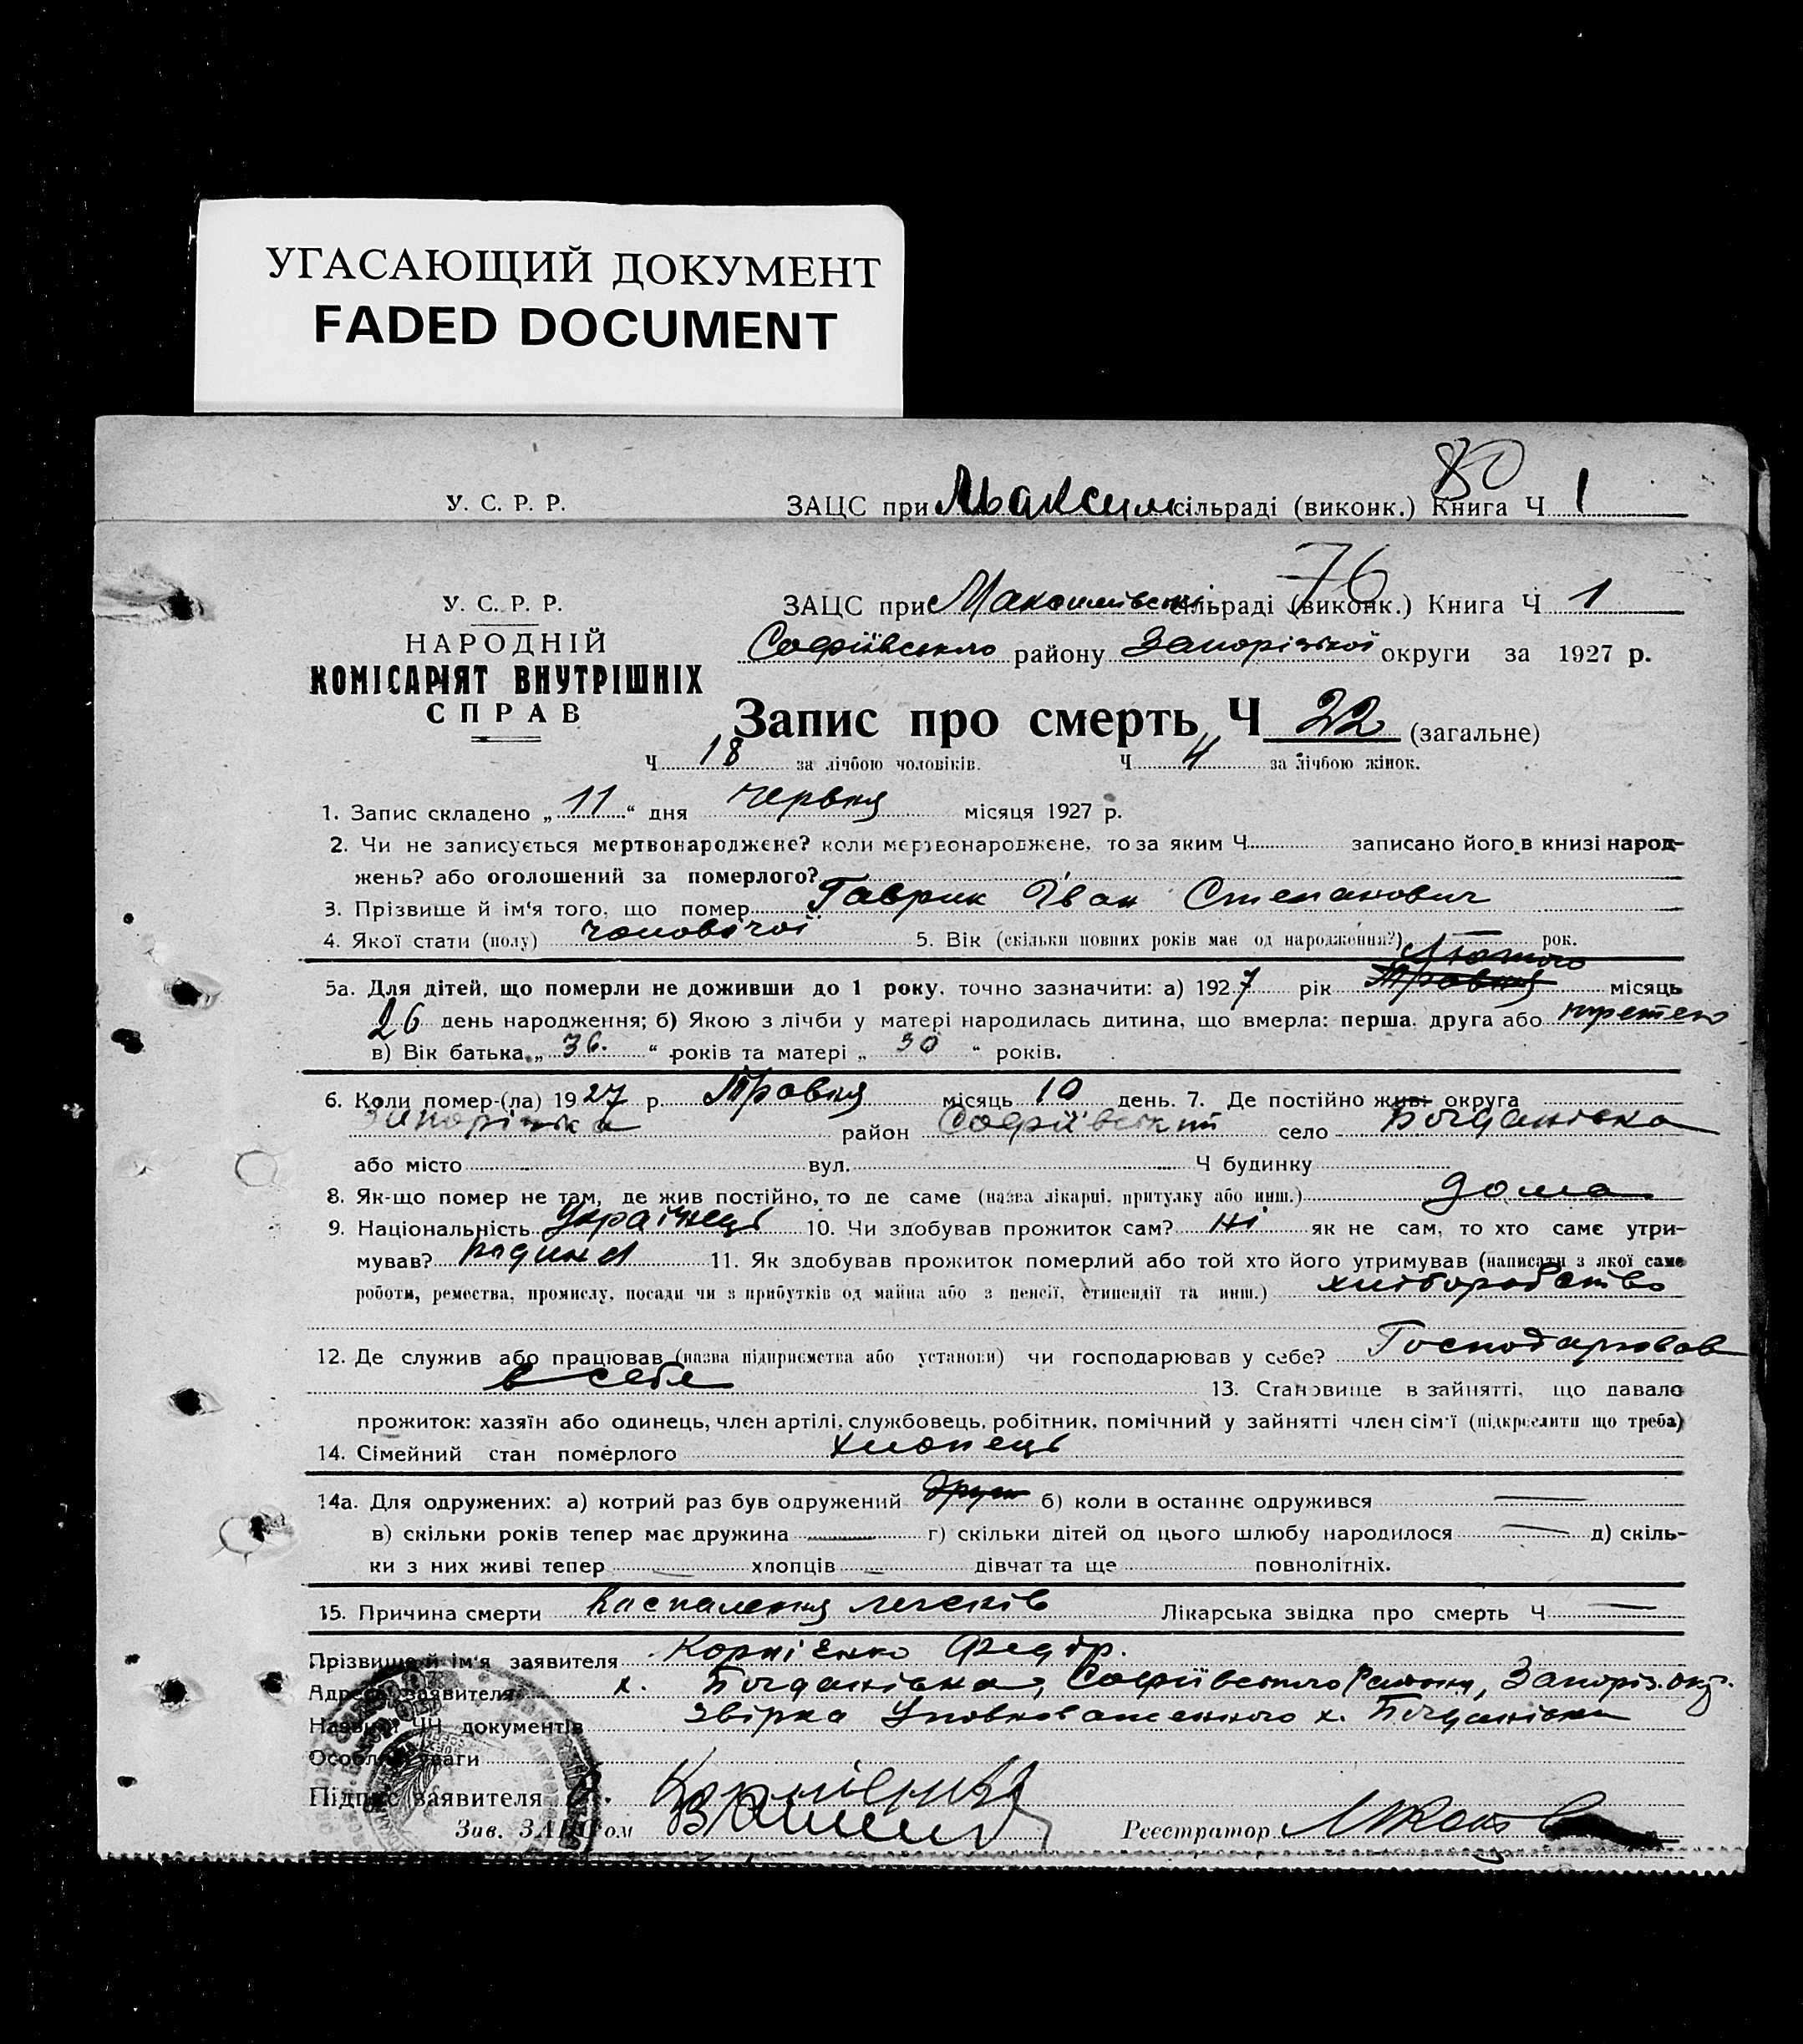 УГАСАЮЩИЙ ДОКУМЕНТ
FADED DOCUMENT
80
У. С. Р. Р. ЗАЦС при Максим сільраді (виконк.) Книга Ч 1
76
У. С. Р. Р. ЗАЦС при Максимівськ сільраді (виконк.) Книга Ч 1
НАРОДНІЙ
КОМІСАРІЯТ ВНУТРІШНІХ
СПРАВ
Софіївського району Запорізької округи за 1927 р.
Запис про смерть Ч 22 (загальне)
Ч 18 за лічбою чоловіків. Ч 4 за лічбою жінок.
1. Запис складено „ 11 “ дня червня місяця 1927 р.
2. Чи не записується мертвонароджене? коли мертвонароджене, то за яким Ч записано його в книзі народ-
жень? або оголошений за померлого?
3. Прізвище й ім‘я того, що помер Гаврик Іван Степанович
4. Якої стати (полу) чоловічої 5. Вік (скільки повних років має од народження?) — рок.
Лютого
5а. Для дітей, що померли не доживши до 1 року, точно зазначити: а) 1927 рік Травня місяць
26 день народження; б) Якою з лічби у матері народилась дитина, що вмерла: перша, друга або третєю
в) Вік батька „ 36. “ років та матері „ 30 “ років.
6. Коли помер-(ла) 1927 р. Травня місяць 10 день. 7. Де постійно жив: округа
Запорізька район Софіївський село Богданівка
або місто вул. Ч будинку
8. Як-що помер не там, де жив постійно, то де саме (назва лікарні, притулку або инш.) дома
9. Національність Українець 10. Чи здобував прожиток сам? ні як не сам, то хто саме утри-
мував? родина 11. Як здобував прожиток померлий або той хто його утримував (написати з якої саме
роботи, ремества, промислу, посади чи з прибутків од майна або з пенсії, стипендії та инш.) хліборобство
12. Де служив або працював (назва підприємства або установи) чи господарював у себе? Господарював
в себе 13. Становище в зайнятті, що давало
прожиток: хазяїн або одинець, член артілі, службовець, робітник, помічний у зайнятті член сім‘ї (підкреслити що треба)
14. Сімейний стан померлого хлопець
14а. Для одружених: а) котрий раз був одружений б) коли в останнє одружився —
в) скільки років тепер має дружина — г) скільки дітей од цього шлюбу народилося — д) скіль-
ки з них живі тепер — хлопців — дівчат та ще повнолітніх.
15. Причина смерти Воспалення легенів Лікарська звідка про смерть Ч —
Прізвище й ім‘я заявителя Корнієнко Федір.
Адреса заявителя х. Богданівка, Софіївського Району, Запоріз. окр.
Назви й ЧЧ документів звірка Уповноваженного х. Богданівки
Особливі уваги
Підпис заявителя
Зав. ЗАЦС‘ом Реєстратор